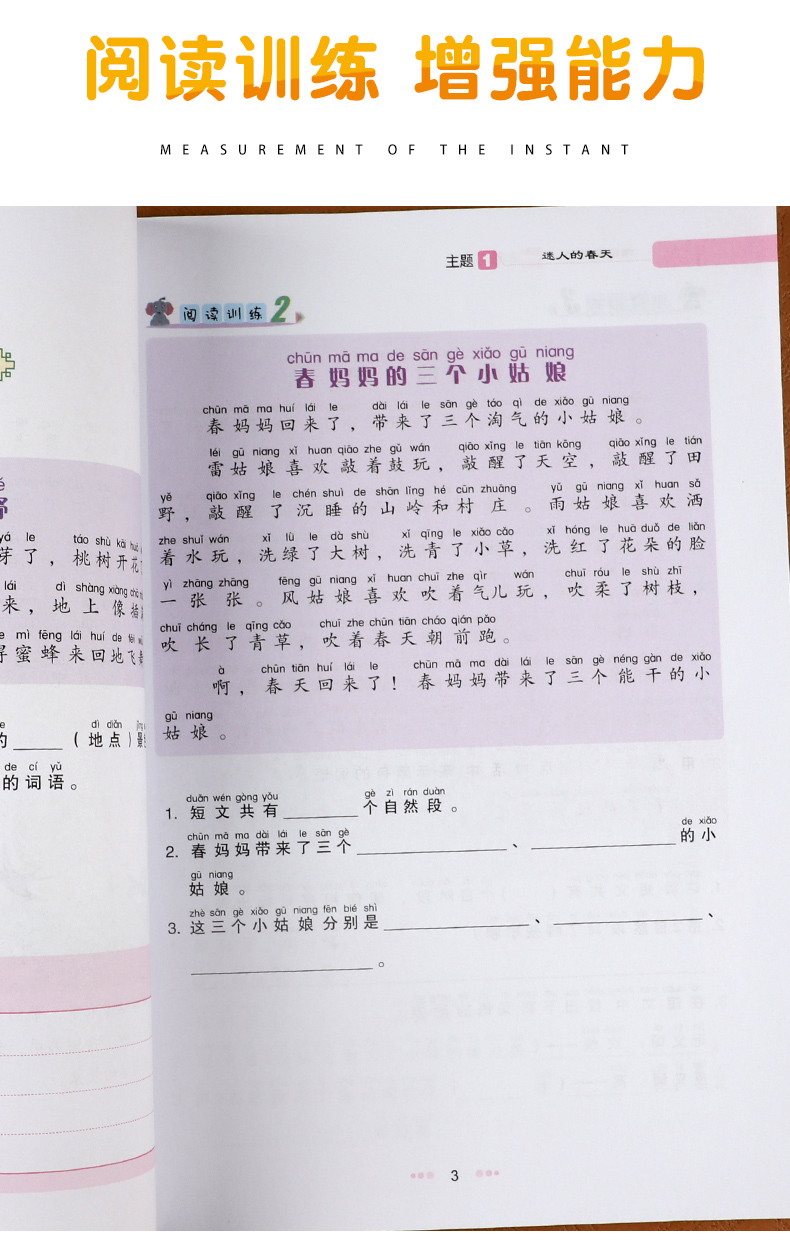 阅读训练 增强能力
MEASUREMENT OF THE INSTANT
主题 1 迷人的春天
阅读训练 2
chūn mā ma de sān gè xiǎo gū niang
春妈妈的三个小姑娘
chūn mā ma huí lái le dài lái le sān gè táo qì de xiǎo gū niang
春妈妈回来了，带来了三个淘气的小姑娘。
léi gū niang xǐ huan qiāo zhe gǔ wán qiāo xǐng le tiān kōng qiāo xǐng le tián
雷姑娘喜欢敲着鼓玩，敲醒了天空，敲醒了田
yě qiāo xǐng le chén shuì de shān lǐng hé cūn zhuāng yǔ gū niang xǐ huan sǎ
野，敲醒了沉睡的山岭和村庄。雨姑娘喜欢洒
zhe shuǐ wán xǐ lǜ le dà shù xǐ qīng le xiǎo cǎo xǐ hóng le huā duǒ de liǎn
着水玩，洗绿了大树，洗青了小草，洗红了花朵的脸
yì zhāng zhāng fēng gū niang xǐ huan chuī zhe qìr wán chuī róu le shù zhī
一张张。风姑娘喜欢吹着气儿玩，吹柔了树枝，
chuī cháng le qīng cǎo chuī zhe chūn tiān cháo qián pǎo
吹长了青草，吹着春天朝前跑。
à chūn tiān huí lái le chūn mā ma dài lái le sān gè néng gàn de xiǎo
啊，春天回来了！春妈妈带来了三个能干的小
gū niang
姑娘。
duǎn wén gòng yǒu gè zì rán duàn
1. 短文共有________个自然段。
chūn mā ma dài lái le sān gè de xiǎo
2. 春妈妈带来了三个________________、________________的小
gū niang
姑娘。
zhè sān gè xiǎo gū niang fēn bié shì
3. 这三个小姑娘分别是________________、________________、
____________________。
3
yá le táo shù kāi huā
芽了，桃树开花
lái dì shàng xiàng
来，地上像插
mì fēng lái huí de fēi
得蜜蜂来回地飞
dì diǎn
的_____（地点）最
de cí yǔ
的词语。